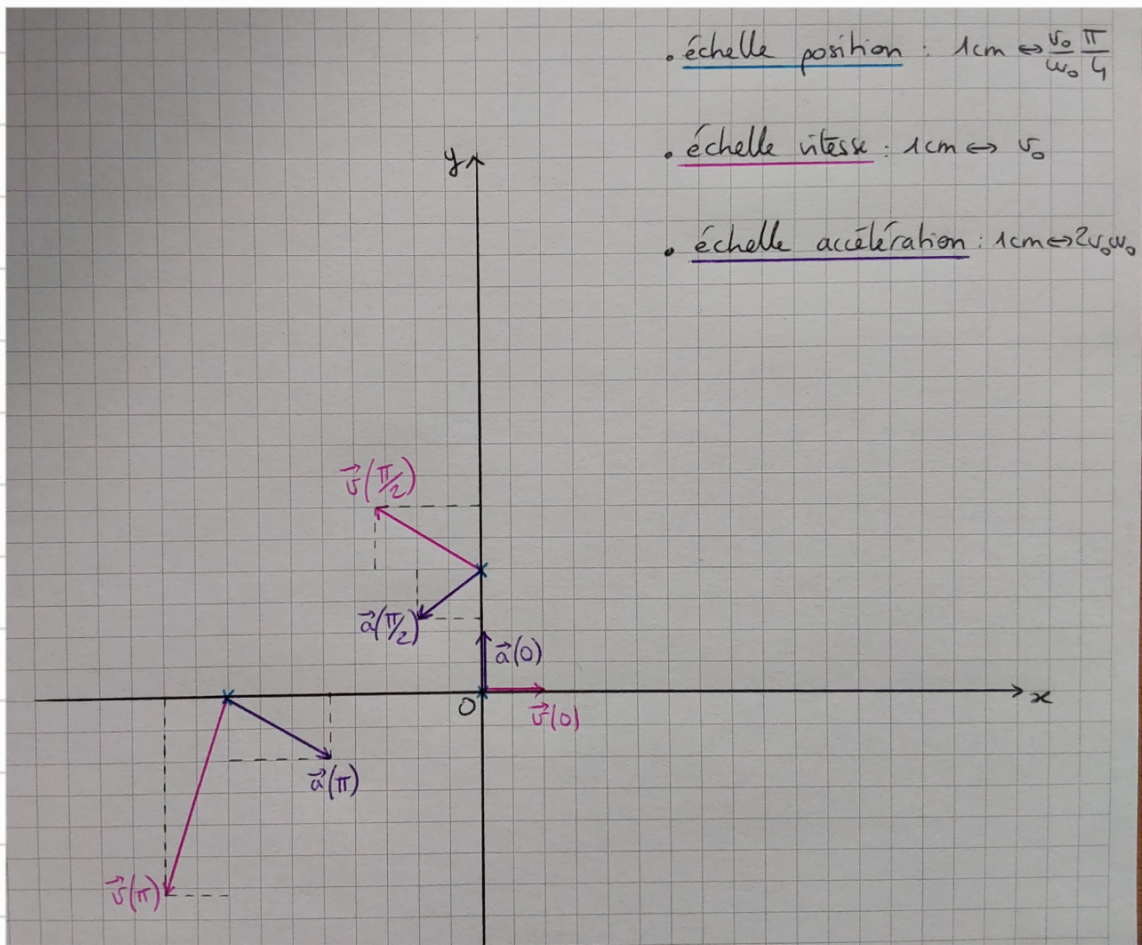 . échelle position : 1cm ↔ v₀/ω₀ π/4
. échelle vitesse : 1cm ↔ v₀
. échelle accélération : 1cm↔2v₀ω₀
y
v⃗(π/2)
a⃗(π/2)
a⃗(0)
O
v⃗(0)
x
a⃗(π)
v⃗(π)